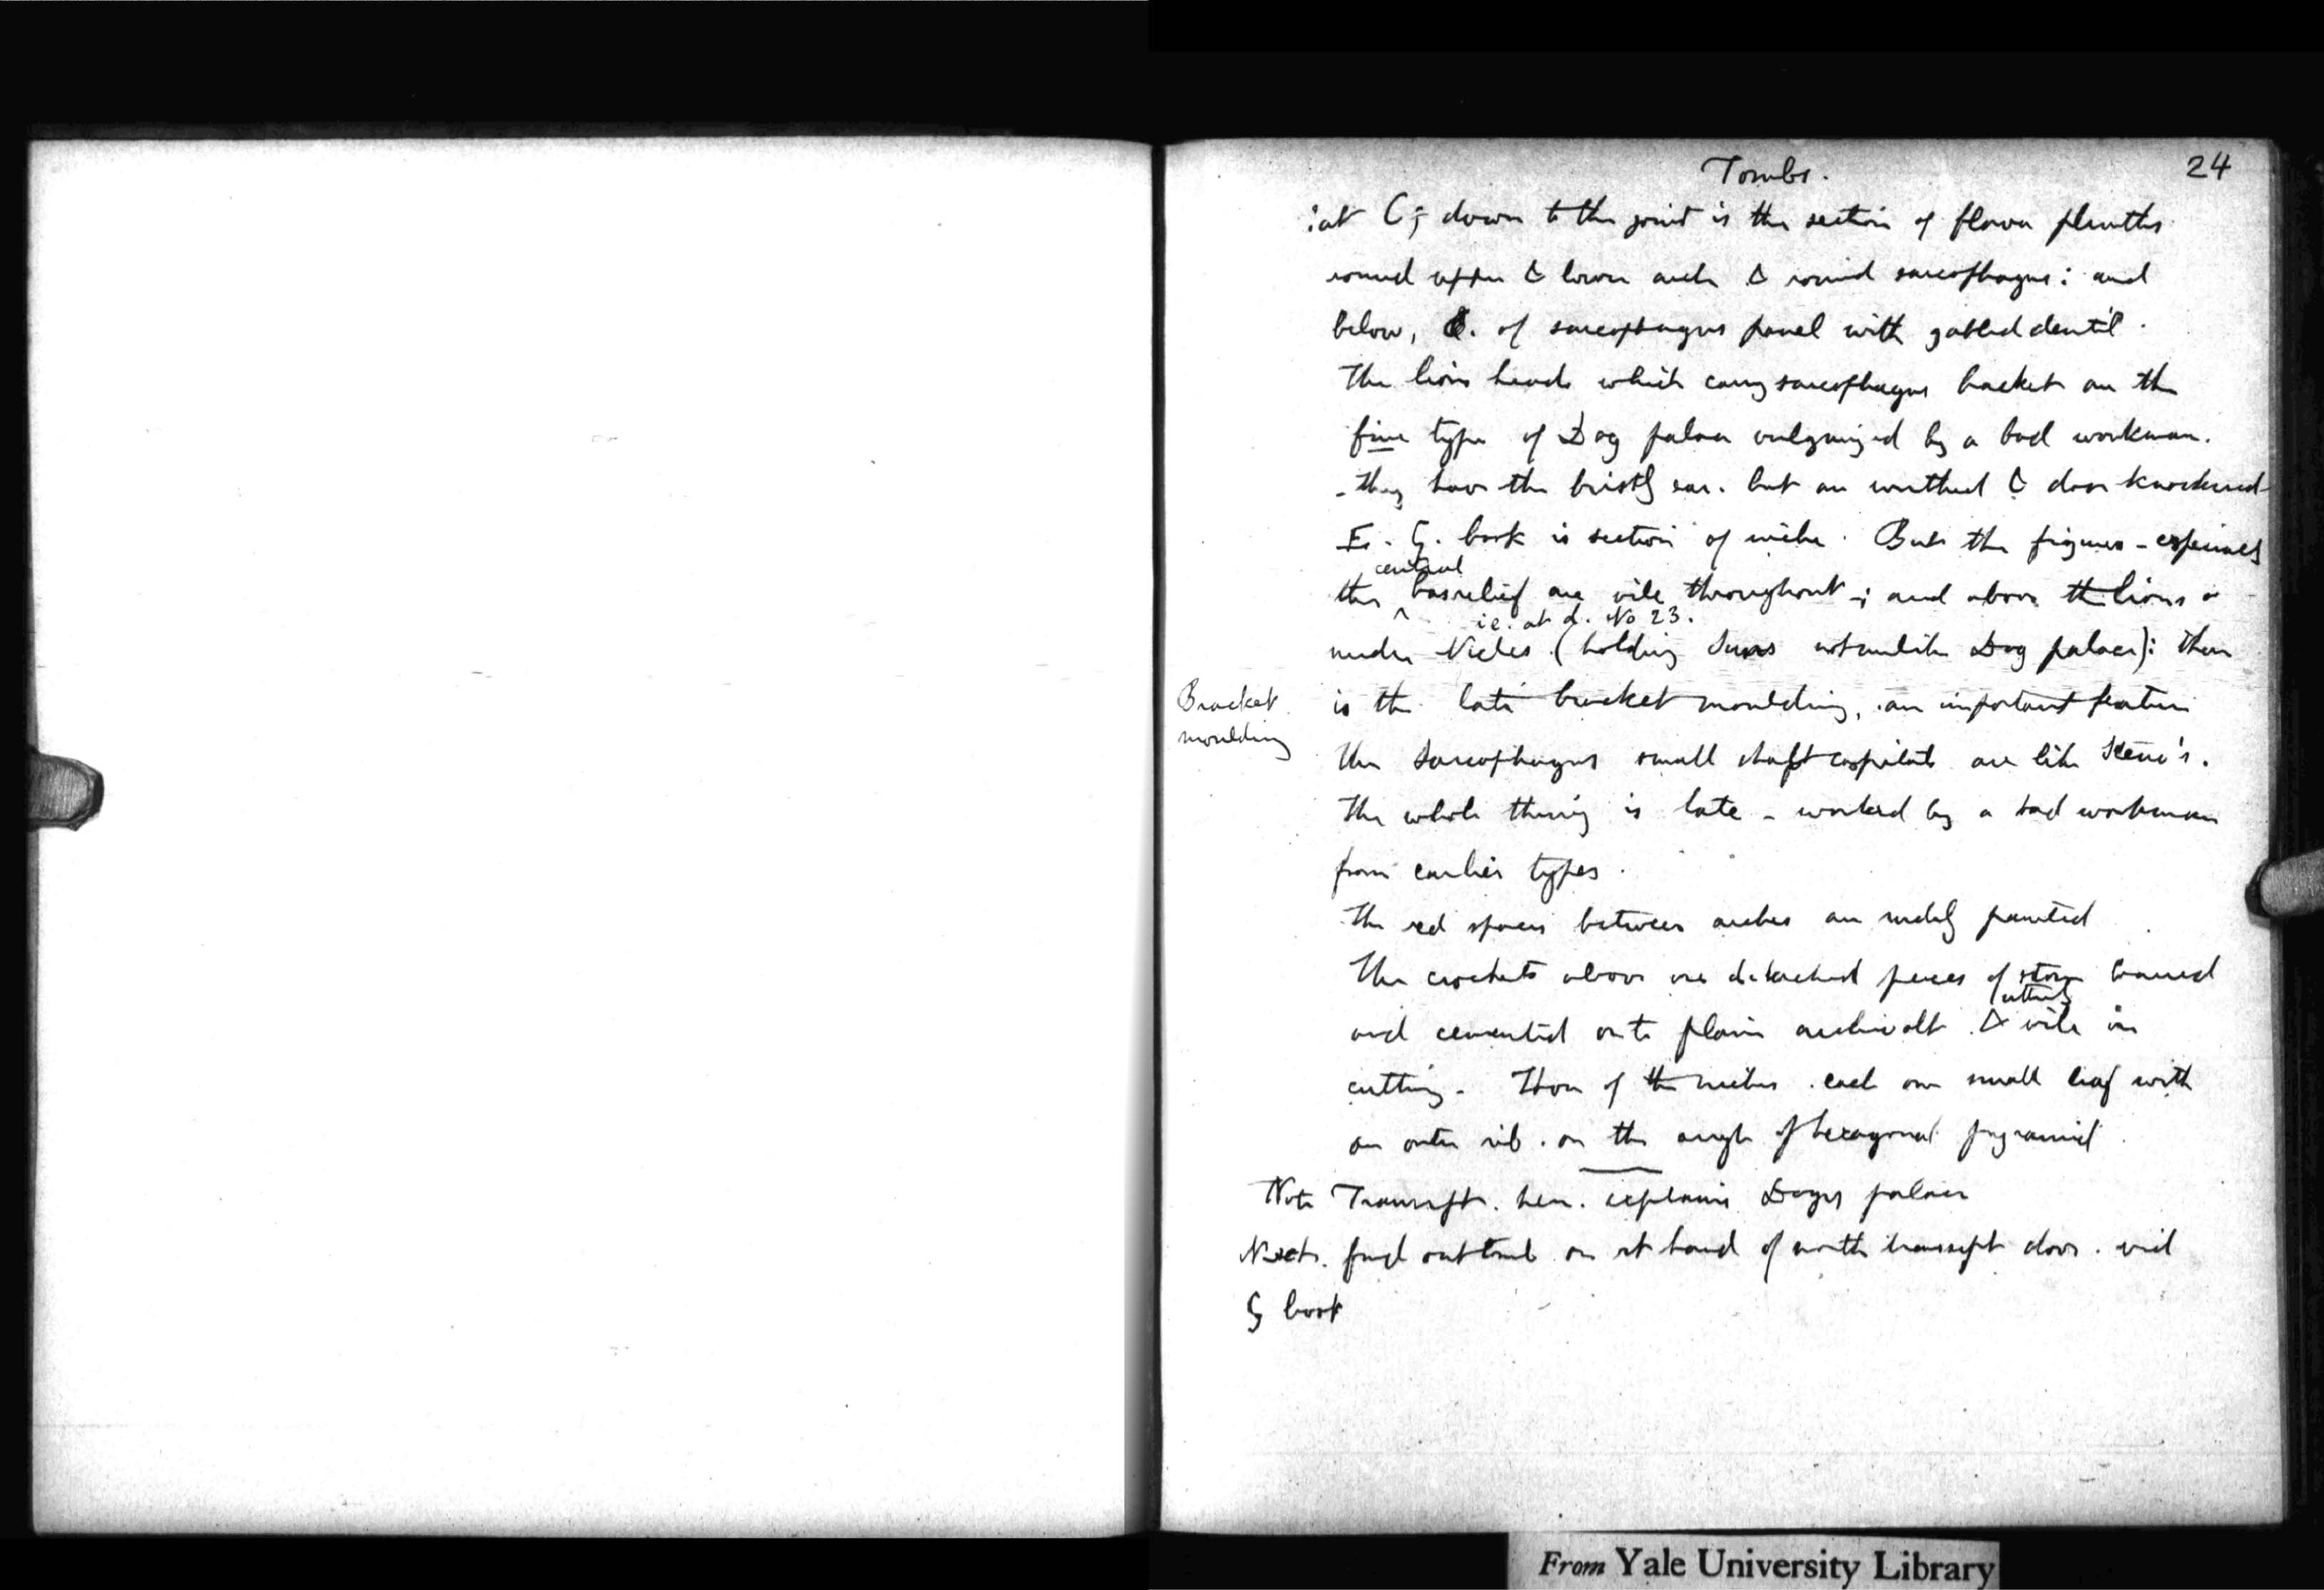 Tombs.
24
: at C; down to the joint is the section of flower plinths
round upper & lower arch & round sarcophagus: and
below, of sarcophagus panel with gabled dentil.
The lions heads which carry sarcophagus bracket are the
fine type of Dog palace vulgarized by a bad workman.
- they have the bristly ear. but are writhed & door knockered
G. book is section of niche. But the figures - especially
central
the basrelief are vile throughout -; and above the lions &
i.e. at d. No 23.
under Niches (holding suns not unlike Dog palace): there
Bracket
moulding
is the late bracket moulding, an important feature
The Sarcophagus small shaft capitals are like Steno's.
The whole thing is late - worked by a bad workman
from earlier types.
The red spaces between arches are rudely painted
The crockets above are detached pieces of stone
utterly
and cemented onto plain archivolt & vile in
cutting. Those of the niches. each one small leaf with
an outer rib. on the angle of hexagonal pyramid.
Note Transept. explains Doges palace
Next. find out tomb on rt hand of north transept door. vid
G book
From Yale University Library